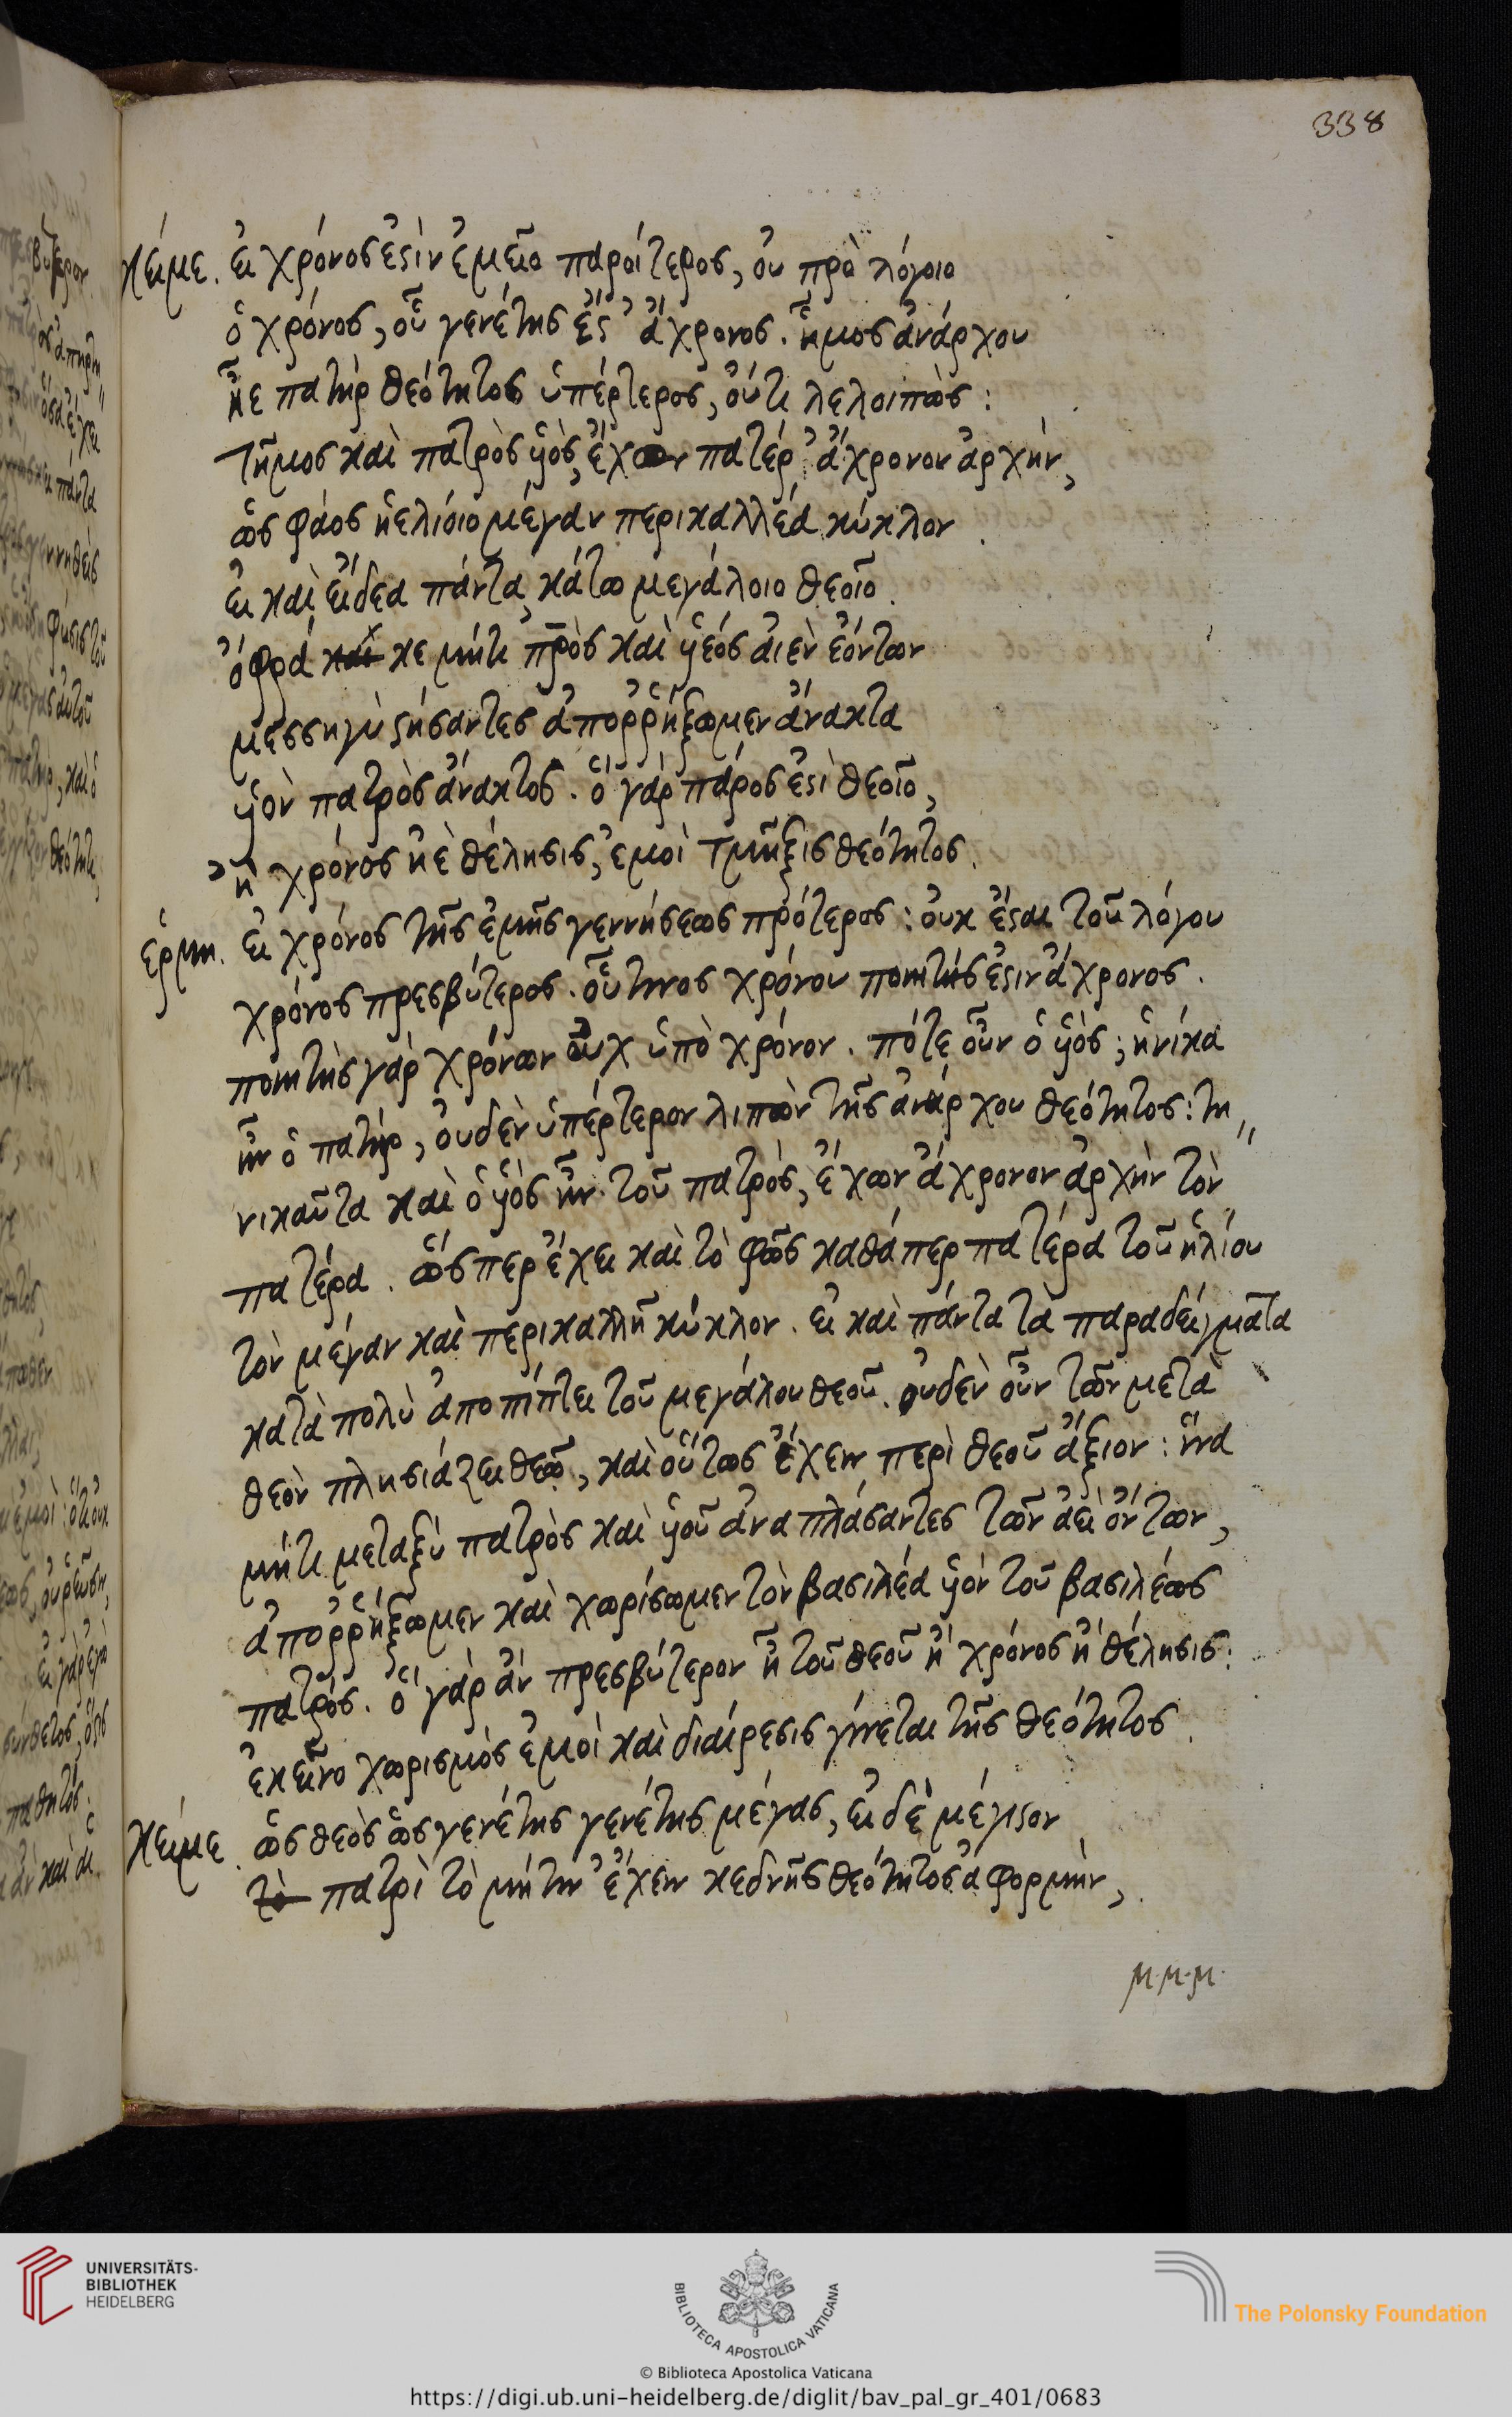 338
κείμε. εἰ χρόνος ἐστὶν ἐμεῖο παροίτερος, οὐ πρὸ λόγοιο
ὁ χρόνος, οὗ γενέτης ἔστ' ἄχρονος. ἦμος ἀνάρχου
ἦε πατὴρ θεότητος ὑπέρτερος, οὔτι λελοιπώς:
τῆμος καὶ πατρὸς ὑϊός, ἔχων πατέρ' ἄχρονον ἀρχήν,
ὡς φάος ἠελίοιο μέγαν περικαλλέα κύκλον.
εἰ καὶ εἴδεα πάντα κάτω μεγάλοιο θεοῖο.
ὄφρά και κε μήτι πρὸς καὶ ὑϊέος αἰὲν ἐόντων
μεσσηγὺ στήσαντες ἀποῤῥήξωμεν ἄνακτα
ὑϊὸν πατρὸς ἄνακτος. ὅ γὰρ πάρος ἐστὶ θεοῖο,
ἢ χρόνος ἠὲ θέλησις, ἐμοὶ τμῆξις θεότητος.
ἑρμη. εἰ χρόνος τῆς ἐμῆς γεννήσεως πρότερος: οὐκ ἔσται τοῦ λόγου
χρόνος πρεσβύτερος. οὗ τινος χρόνου ποιητής ἐστιν ἄχρονος.
ποιητὴς γὰρ χρόνων οὐχ ὑπὸ χρόνον. πότε οὖν ὁ ὑϊός; ἡνίκα
ἦν ὁ πατήρ, οὐδὲν ὑπέρτερον λιπὼν τῆς ἀνάρχου θεότητος: τη
νικαῦτα καὶ ὁ ὑϊὸς ἦν τοῦ πατρὸς, ἔχων ἄχρονον ἀρχὴν τὸν
πατέρα. ὥσπερ ἔχει καὶ τὸ φῶς καθάπερ πατέρα τοῦ ἡλίου
τὸν μέγαν καὶ περικαλλῆ κύκλον. εἰ καὶ πάντα τὰ παραδείγματα
κατὰ πολὺ ἀποπίπτει τοῦ μεγάλου θεοῦ. οὐδὲν οὖν τῶν μετὰ
θεὸν πλησιάζει θεῷ, καὶ οὕτως ἔχειν περὶ θεοῦ ἄξιον: ἵνα
μήτι μεταξὺ πατρὸς καὶ ὑϊοῦ ἀναπλάσαντες τῶν ἀεὶ ὄντων,
ἀποῤῥήξωμεν καὶ χωρίσωμεν τὸν βασιλέα ὑϊὸν τοῦ βασιλέως
πατρός. ὅ γὰρ ἂν πρεσβύτερον ἦ τοῦ θεοῦ ἢ χρόνος ἢ θέλησις:
ἐκεῖνο χωρισμὸς ἐμοὶ καὶ διαίρεσις γίνεται τῆς θεότητος.
κείμε. ὡς θεὸς ὡς γενέτης γενέτης μέγας, εἰ δὲ μέγιστον
τὸ πατρὶ τὸ μήτιν' ἔχειν κεδνῆς θεότητος ἀφορμήν,
μ.μ.μ.
UNIVERSITÄTS-
BIBLIOTHEK
HEIDELBERG
BIBLIOTECA APOSTOLICA VATICANA
The Polonsky Foundation
© Biblioteca Apostolica Vaticana
https://digi.ub.uni-heidelberg.de/diglit/bav_pal_gr_401/0683